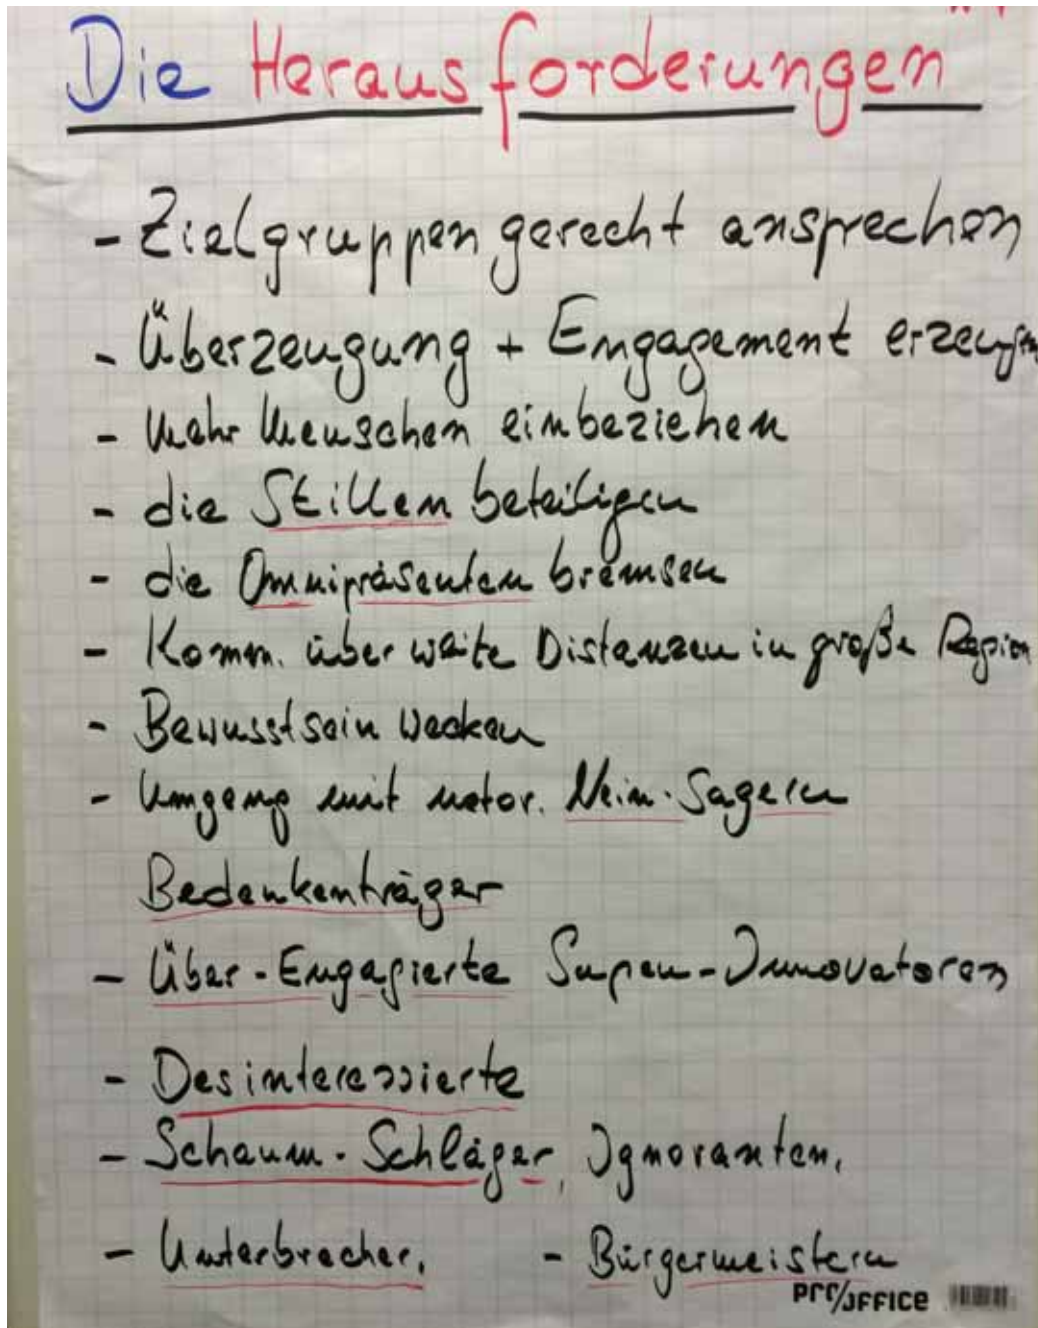 Die Herausforderungen
- Zielgruppengerecht ansprechen
- Überzeugung + Engagement erzeugen
- Mehr Menschen einbeziehen
- die Stillen beteiligen
- die Omnipräsenten bremsen
- Komm. über weite Distanzen in große Region
- Bewusstsein wecken
- Umgang mit notor. Nein-Sagern
Bedenkenträger
- Über-Engagierte -Innovatoren
- Desinteressierte
- Schaum-Schläger, Ignoranten,
- Unterbrecher, - Bürgermeistern
PRO/OFFICE